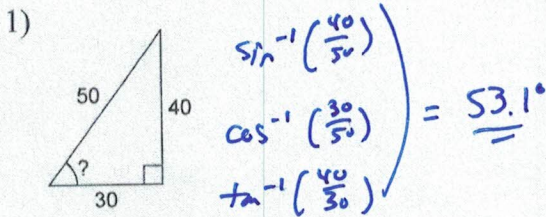 1)
50
40
?
30
sin⁻¹(40/50)
cos⁻¹(30/50)
tan⁻¹(40/30)
= 53.1°